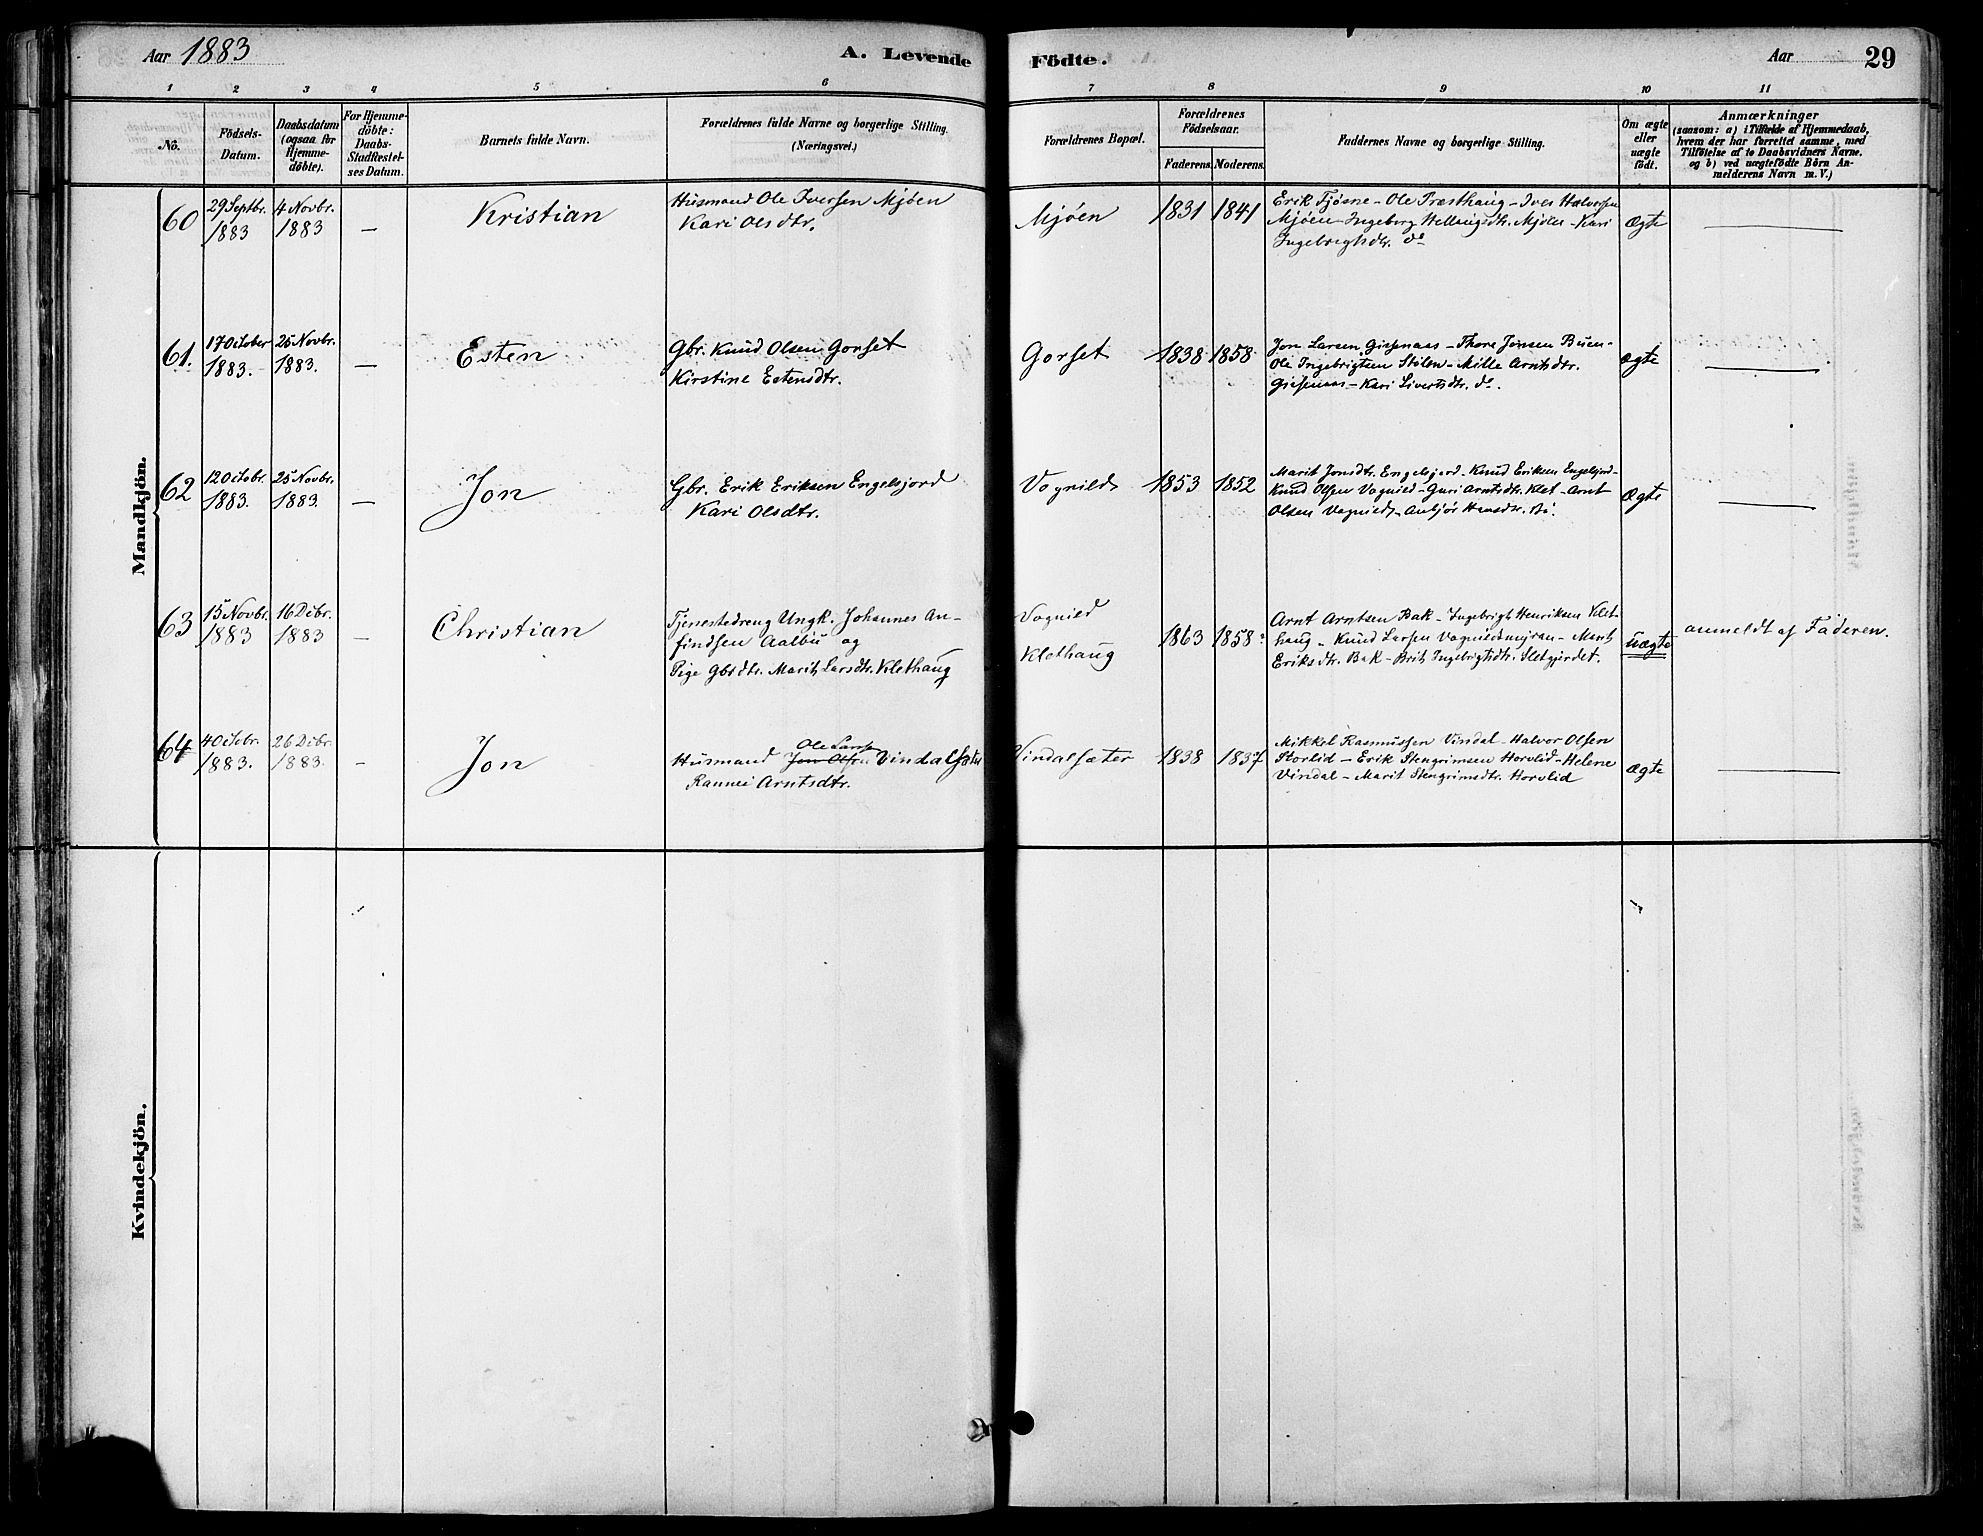 Aar 1883
A. Levende Födte.
Aar
29
1 2 3 4 5 6 7 8 9 10 11
Nô.
Födsels-
Datum.
Daabsdatum
(ogsaa for
Hjemme-
döbte).
For Hjemme-
döbte:
Daabs-
Stadfæstel-
ses Datum.
Barnets fulde Navn.
Forældrenes fulde Navne og borgerlige Stilling.
(Næringsvei.)
Forældrenes Bopæl.
Forældrenes
Födselsaar.
Faderens. Moderens.
Faddernes Navne og borgerlige Stilling.
Om ægte
eller
uægte
födt.
Anmærkninger
(saasom: a) i Tilfælde af Hjemmedaab,
hvem der har forrettet samme, med
Tilföielse af to Daabsvidners Navne.
og b) ved uægtefödte Börn An-
melderens Navn m. V.)
Mandkjön.
60
29 Septbr.
1883
4 Novbr.
1883
—
Kristian
Husmand Ole Iversen Mjöen
Kari Olsdtr.
Mjöen
1831
1841
Erik Fjösne - Ole Præsthaug - Iver Halvorsen
Mjöen - Ingeborg Mjöen - Kari
Ingebrightsdtr. do
Ægte
61.
17 October
1883.
25 Novbr.
1883.
—
Esten
Gbr. Knud Olsen Gorset
Kirstine Estensdtr.
Gorset
1838
1858
Jon Larsen - Thore Jonsen Buen -
Ole Ingebrigtsen Stölen - Mille Arntsdtr.
- Kari Sivertsdtr. do.
Ægte
62
12 Octobr.
1883.
25 Novbr.
1883.
—
Jon
Gbr. Erik Eriksen Engelsjord
Kari Olsdtr.
Vognild
1853
1852
Marit Jonsdtr. Engelsjord - Knud Eriksen Engelsjord -
Knud Olsen Vognild - Guri Arntsdtr. Klet - Arnt
Olsen Vognild - Anbjör
Ægte
63
15 Novbr.
1883
16 Dcbr.
1883
—
Christian
Tjenestedreng Ungk. Johannes An-
findsen Aalbu og
Pige Gbrdtr. Marit Larsdtr. Klethaug
Vognild
Klethaug
1863
1858
Arnt Arntsen Bak - Ingebrigt Henriksen Klet-
haug - Knud Larsen Vognildsmyran - Marit
Eriksdtr. Bak - Brit Ingebrigtsdtr. Sletgjerdet.
uægte
anmeldt af Faderen.
64
4 Octbr.
1883.
26 Dcbr.
1883.
-
Jon
Ole Larsen
Husmand Jon Olsen Vindalsæter
Rannei Arntsdtr.
Vindalsæter
1838
1837
Mikkel Rasmussen Vindal - Halvor Olsen
Storlid - Erik Stengrimsen Horvlid - Helene
Vindal - Marit Stengrimsdtr. Horvlid
Ægte
Kvindekjön.